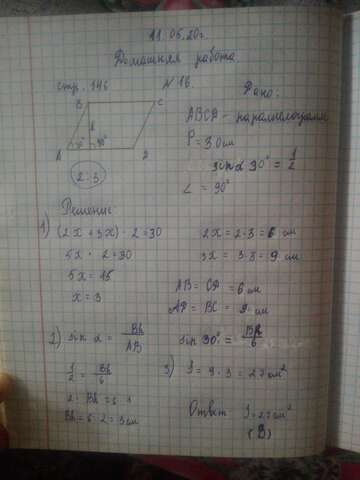 11.05.20г.
Домашняя работа.
стр. 146 №16.
Дано:
B C
ABCD - параллелограмм
P = 30 см
sin α 30° = 1/2
A D
2:3
Решение:
1) (2x + 3x) · 2 = 30
5x · 2 = 30
5x = 15
x = 3
2x = 2·3 = 6 см
3x = 3·3 = 9 см
AB = CD = 6 см
AD = BC = 9 см
2) sin α = Bh/AB
sin 30° = Bh/6
1/2 = Bh/6
2 · Bh = 6 · 1
Bh = 6 : 2 = 3 см
3) S = 9 · 3 = 27 см²
Ответ S = 27 см²
(B)